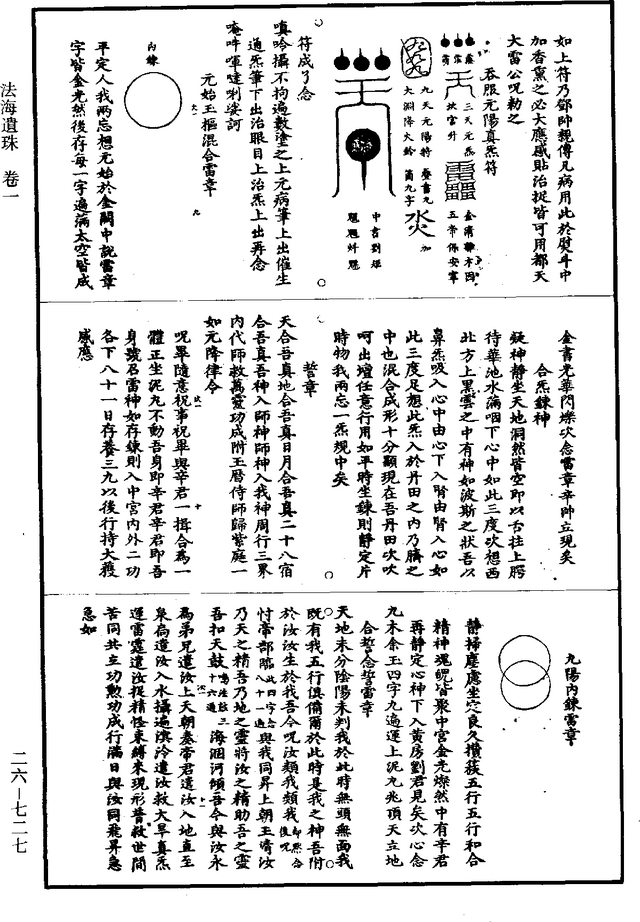 如上符乃鄧帥親傳凡病用此於熨斗中
加香熏之必大應感貼治捉皆可用都天
大雷公呪勅之
吞服元陽真炁符
三天元炁
扶宮升
五帝保安寧
九天元陽符
大淵降火鈴
符成了念
嗔吟攝不拘遍數塗之上元病筆上出催生
通炁筆下出治眼目上治炁上出再念
唵吽㖶㗳唎娑訶
元始玉樞混合雷章
內鍊
平定人我兩忘想元始於金闕中說雷章
字皆金光然後存每一字遍滿太空皆成
金書光華閃爍次念雷章辛帥立現矣
合炁鍊神
凝神靜坐天地洞然皆空即以舌拄上腭
待華池水滿咽下心中如此三度次想西
北方上黑雲之中有神如波斯之狀吾以
鼻炁吸入心中由心下入腎由腎入心如
此三度足想此炁入於丹田之內乃臍之
中也混合成形十分顯現在吾丹田次吹
呵出壇任意行用如平時坐鍊則靜定片
時物我兩忘一炁規中矣
誓章
天合吾真地合吾真日月合吾真二十八宿
合吾真吾神入師神師神入我神周行三界
內代師救萬靈功成附玉曆侍師歸紫庭一
如元降律令
呪畢隨意祝事祝畢與辛君一揖合為一
體正坐泥丸不動吾身即辛君辛君即吾
身號召雷神如存鍊則入中宮內外二功
各下八十一日存養三九以後行持大獲
感應
九陽內鍊雷章
靜掃塵慮坐定良久攢簇五行五行和合
精神魂魄皆聚中宮金光燦然中有辛君
再靜定心神下入黃房劉君見矣次心念
九木余玉四字九遍運上泥丸兆頂天立地
合誓念誓雷章
天地未分陰陽未判我於此時無頭無面我
既有我五行俱備爾於此時是我之神吾附
於汝汝生於我吾今呪汝類我類我
忖帝部臨與我同昇上朝玉清汝
乃天之精吾乃地之靈將汝之精助吾之靈
吾扣天鼓海涸河傾吾今與汝永
為弟兄遣汝上天朝奏帝君遣汝入地直至
泉扃遣汝入水攝遍溟泠遣汝救大旱真炁
運雷霆遣汝捉精怪束縛來現形普救世間
苦同共立功勲功成行滿日與汝同飛昇急
急如
法海遺珠 卷一
二六—七二七